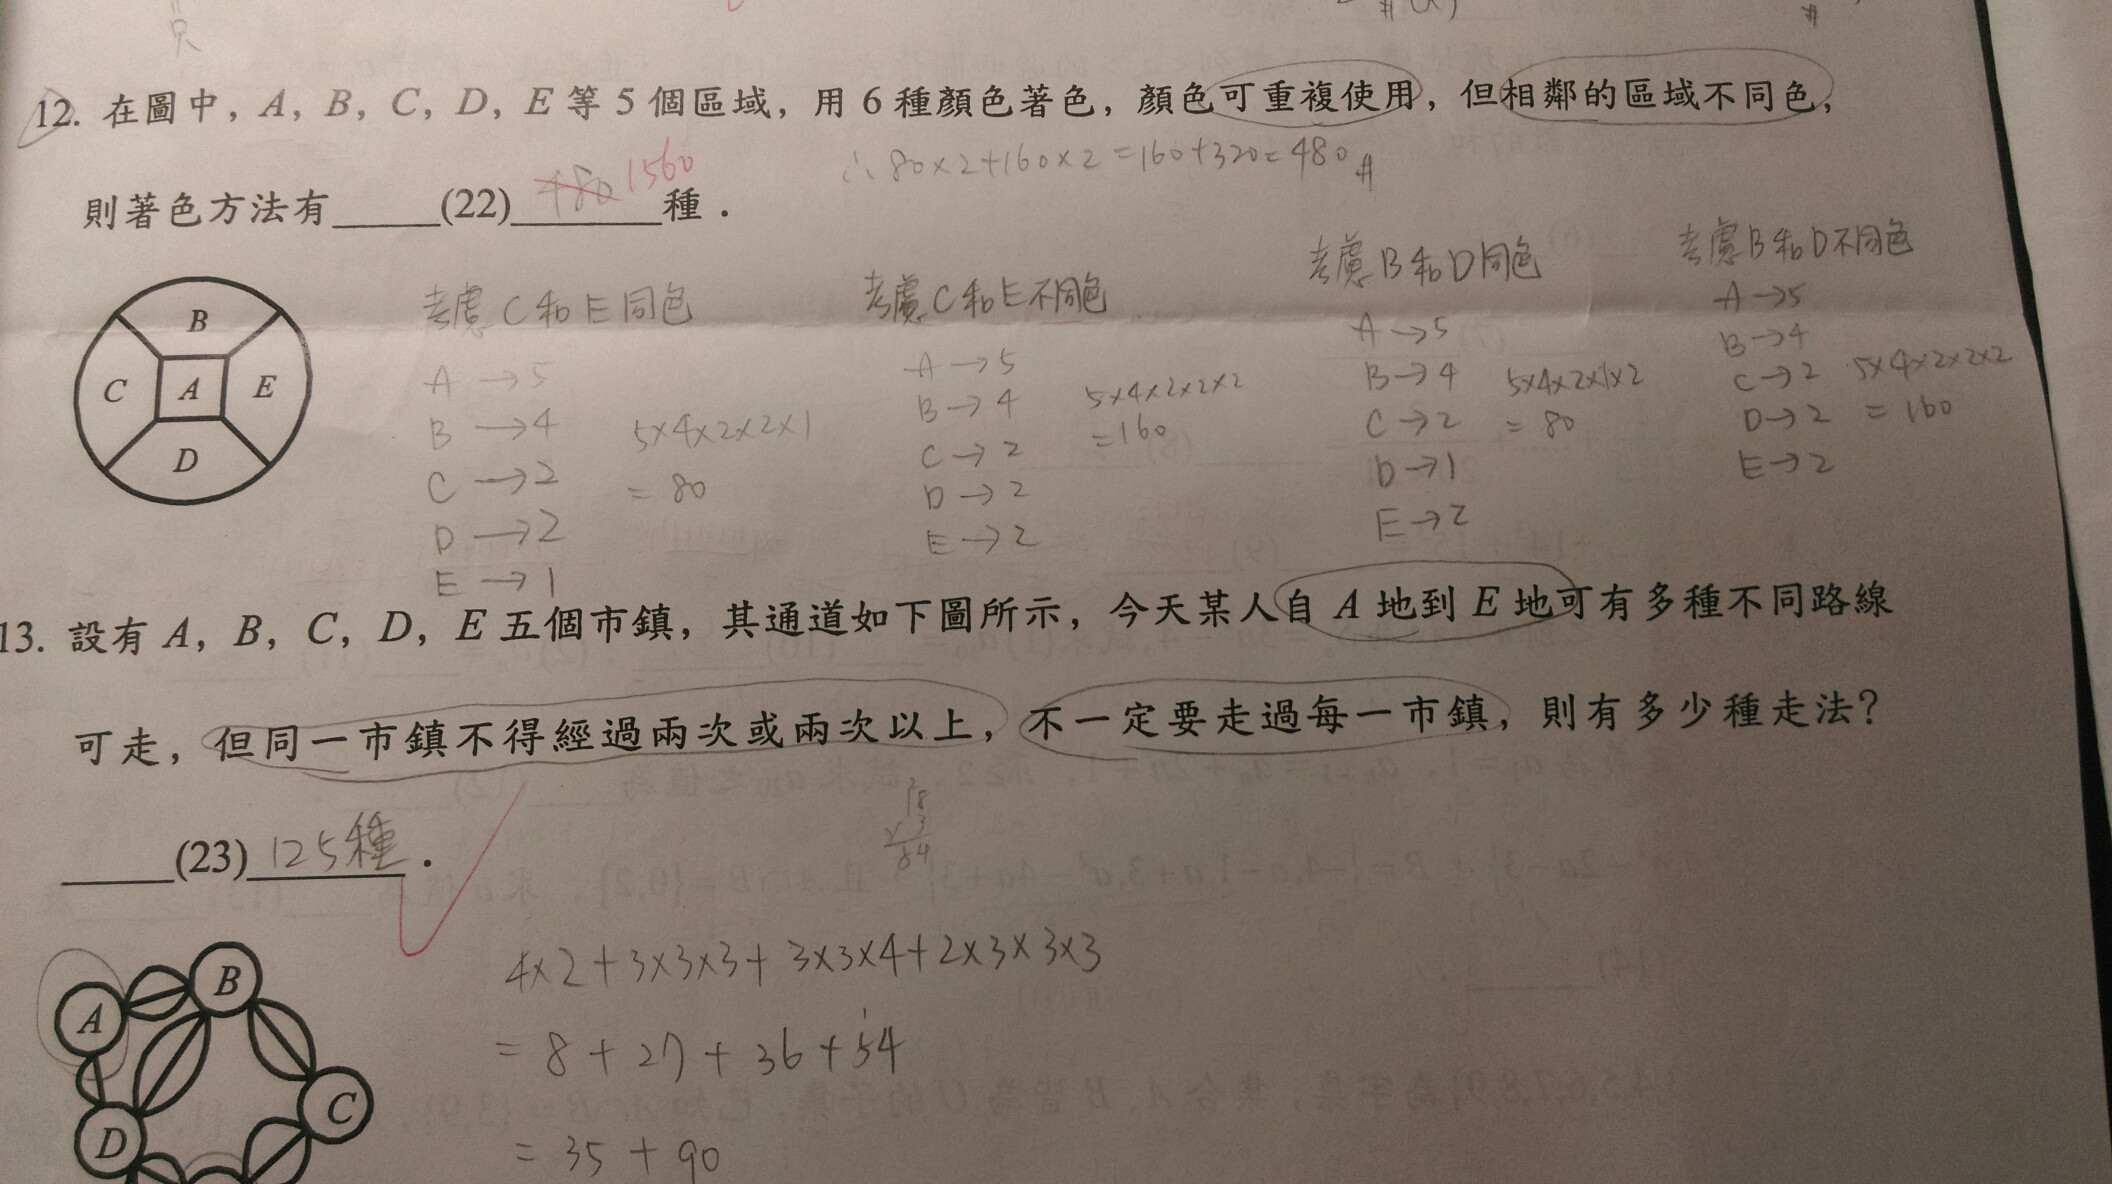 12. 在圖中，A，B，C，D，E 等 5 個區域，用 6 種顏色著色，顏色可重複使用，但相鄰的區域不同色，
∴ 80×2+160×2=160+320=480 #
則著色方法有 (22) 480 1560 種．
B
C A E
D
考慮 C 和 E 同色
A → 5
B → 4
C → 2
D → 2
E → 1
5×4×2×2×1
= 80
考慮 C 和 E 不同色
A → 5
B → 4
C → 2
D → 2
E → 2
5×4×2×2×2
=160
考慮 B 和 D 同色
A → 5
B → 4
C → 2
D → 1
E → 2
5×4×2×1×2
= 80
考慮 B 和 D 不同色
A → 5
B → 4
C → 2
D → 2
E → 2
5×4×2×2×2
= 160
13. 設有 A，B，C，D，E 五個市鎮，其通道如下圖所示，今天某人自 A 地到 E 地可有多種不同路線
可走，但同一市鎮不得經過兩次或兩次以上，不一定要走過每一市鎮，則有多少種走法？
(23) 125種．
18
× 3
54
A
B
C
D
4×2+3×3×3+3×3×4+2×3×3×3
= 8+27+36+54
= 35+90